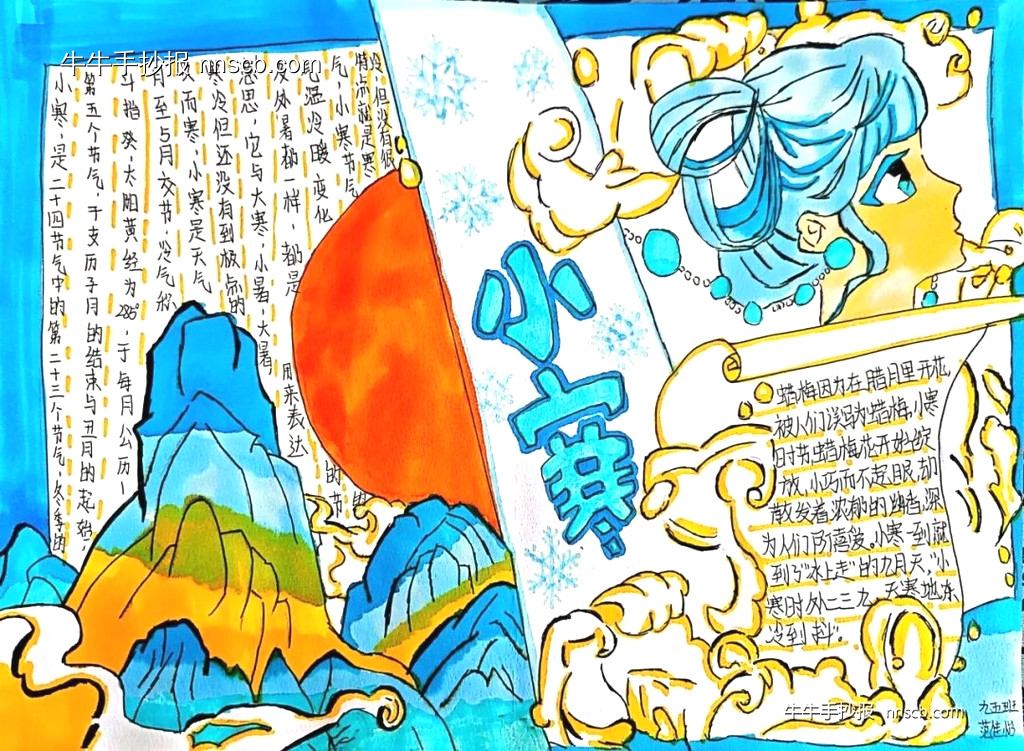 牛牛手抄报 nnscb.com
小寒，是二十四节气中的第二十三个节气，冬季的
第五个节气，干支历子月的结束与丑月的起始，
斗指癸，太阳黄经为285°，于每月公历1
月至与月交节，冷气积
久而寒，小寒是天气
寒冷但还没有到极点的
意思，它与大寒，小暑，大暑
及处暑都一样，都是用来表达
气温冷暖变化的节
气，小寒节气
特点就是寒
冷，但没有很
小寒
蜡梅因为在腊月里开花，
被人们误写为蜡梅，小寒
时节蜡梅花开始绽
放，小巧而不起眼，却
散发着浓郁的幽香，深
为人们所喜爱。小寒一到就
到了“冰上走”的九天，“小
寒时处二三九，天寒地冻
冷到抖”。
牛牛手抄报 nnscb.com
九五班
范佳